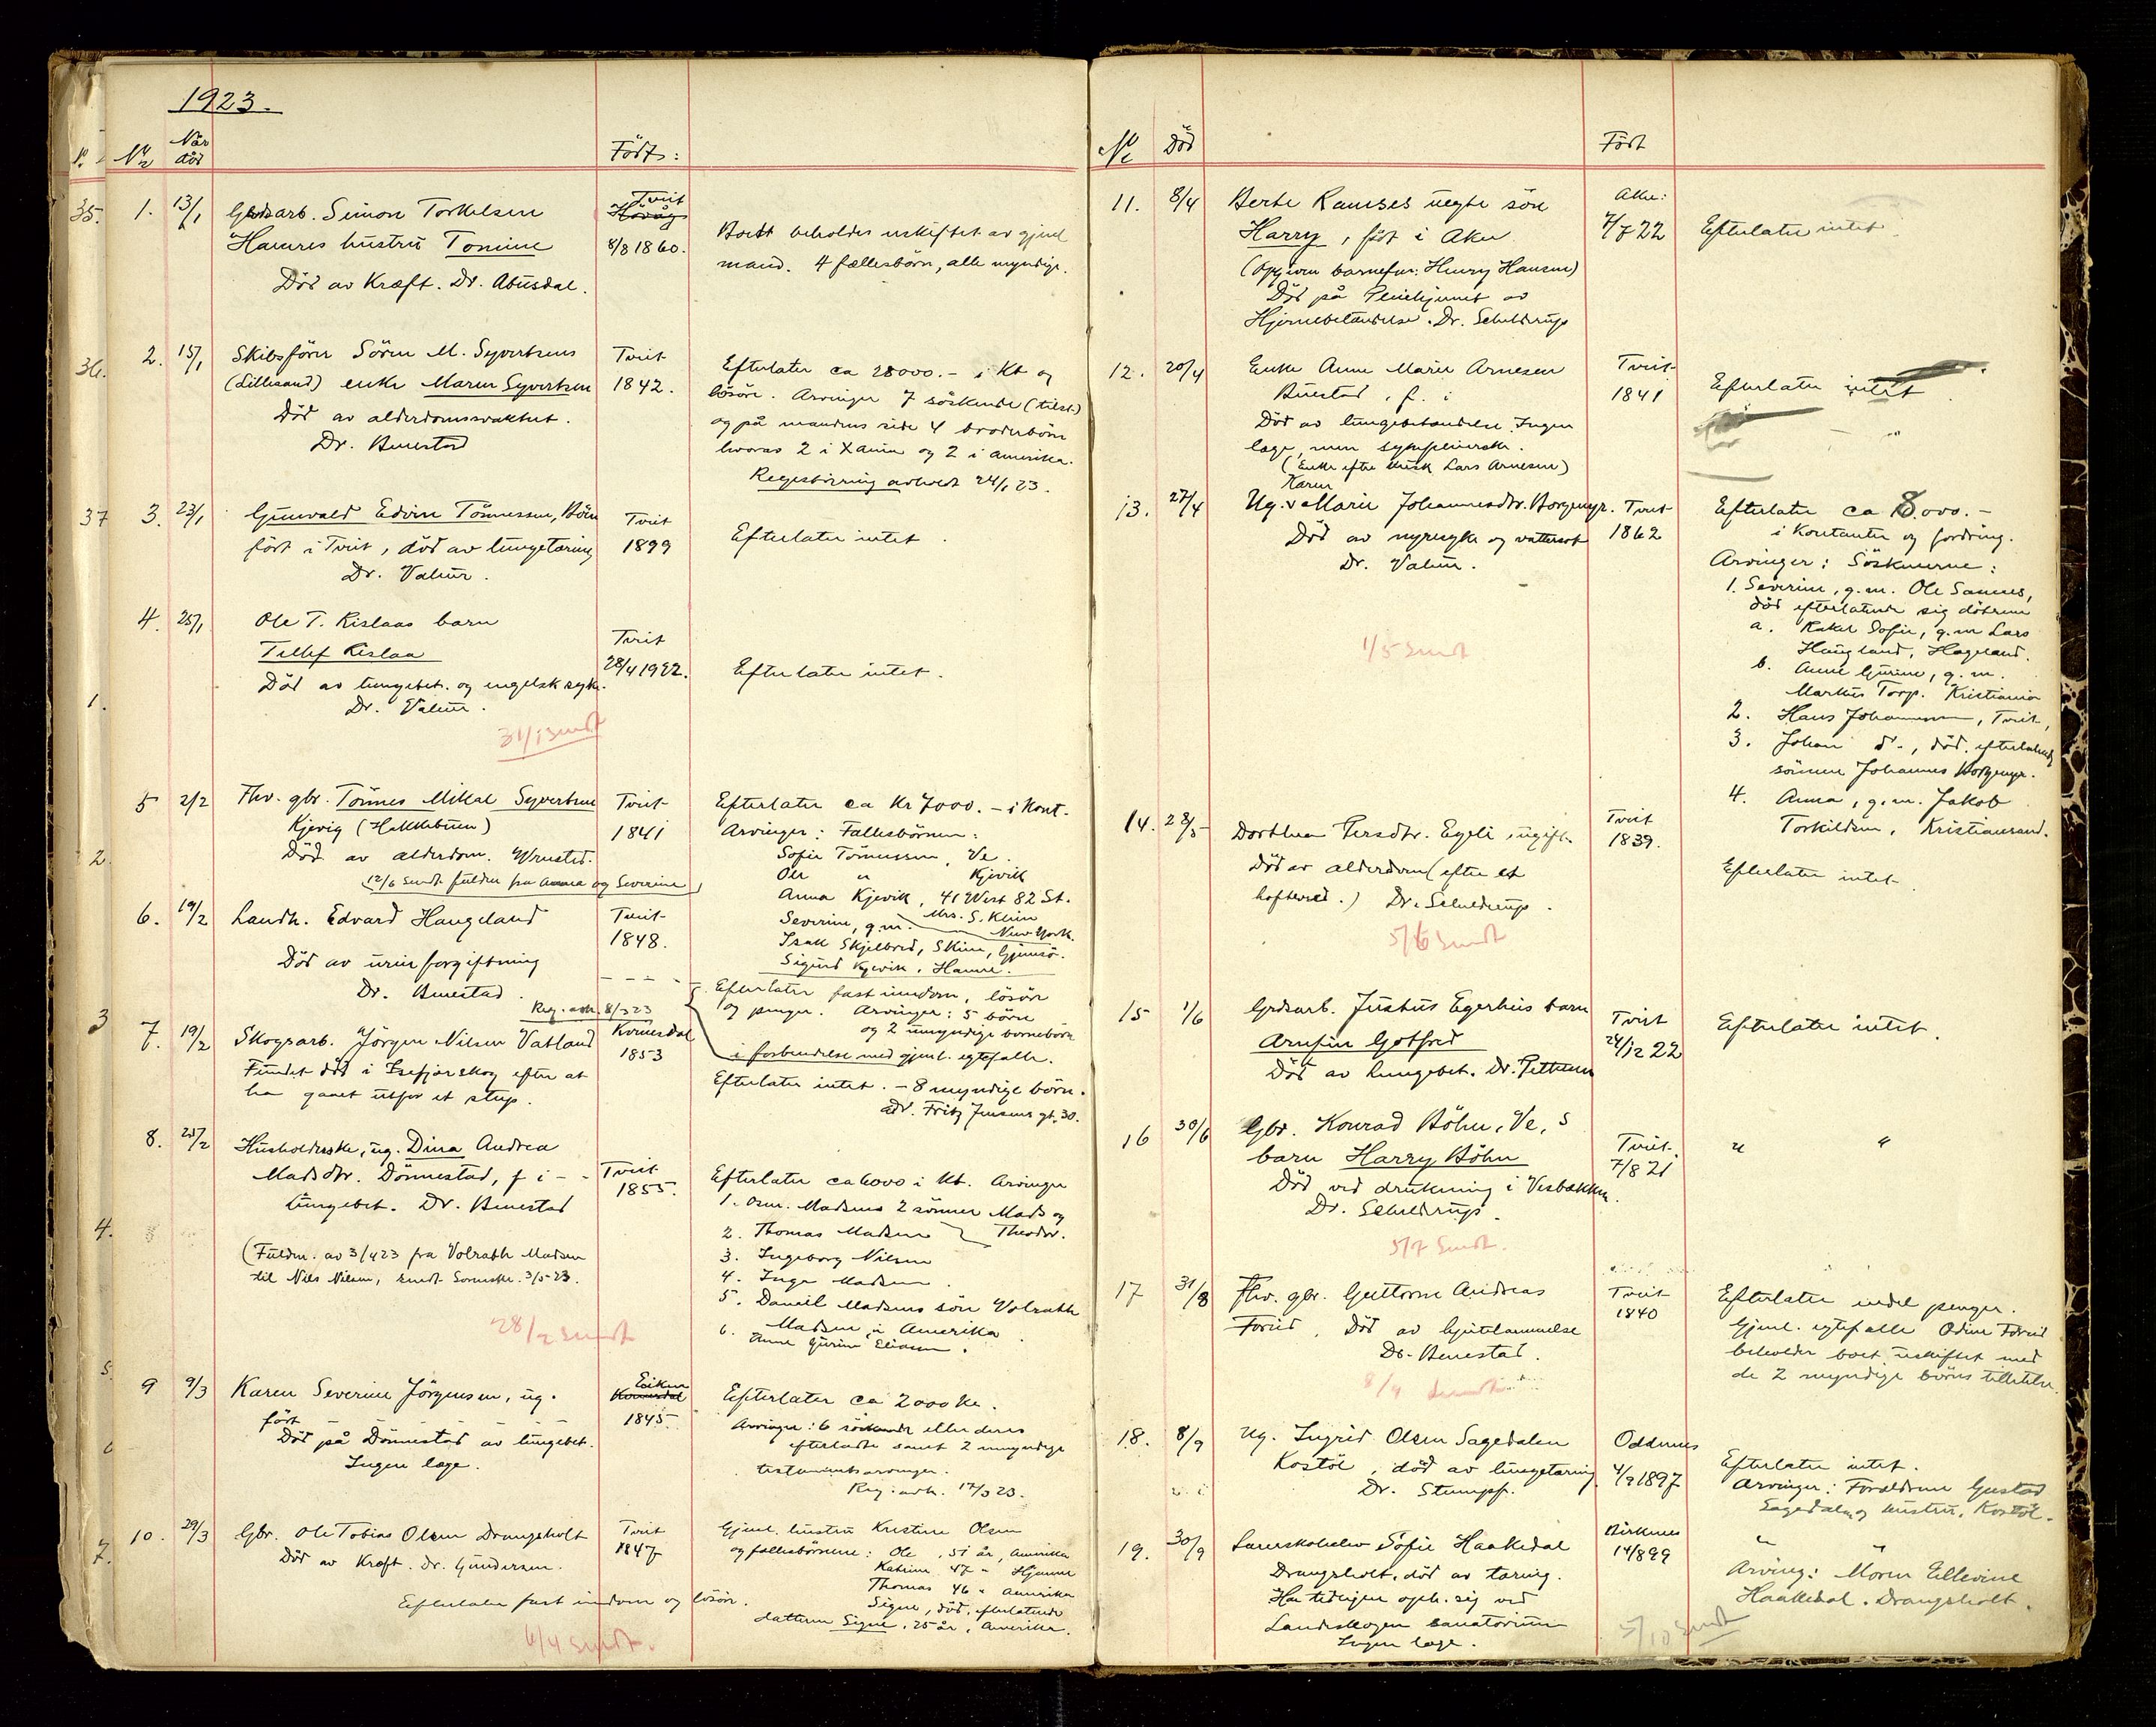 1923.
No
Når
död
Födt:
35.
1. 13/1
Grdsarb. Simon Torkelsen
Hamres hustru Tomine
Död av Kræft. Dr. Abusdal.
Tveit
Hövåg
8/8 1860.
Boet beholdes uskiftet av gjenl
mand. 4 fællesbörn, alle myndige.
36.
2. 15/1
Skibsförer Sören M. Syvertsens
(Lillesand) enke Maren Syvertsen
Död av alderdomssvakhet.
Dr. Benestad
Tveit
1842.
Efterlater ca 28000.- i Kt og
lösöre. Arvinger 7 söskende (tilst.)
og på mandens side 4 broderbörn
hvorav 2 i Xania og 2 i Amerika.
Registrering avholdt 24/1 23.
37
3. 23/1
Gunvald Edvin Tönnessen, Böen
föst i Tveit, död av lungetæring
Dr. Valeur.
Tveit
1899
Efterlater intet.
4. 25/1
Ole T. Rislaas barn
Tellef Rislaa
Död av lungebet. og engelsk syke.
Dr. Valeur.
Tveit
28/4 1922.
Efterlater intet.
31/1 sendt
1.
5 2/2
Fhv. gbr. Tönnes Mikal Syvertsen
Kjevig (Hakkebuen)
Död av alderdom.
12/6 sendt fuldm fra Anna og Severine
Tveit
1841
Efterlater ca Kr 7000.- i Kont.
Arvinger: Fællesbörnene:
Sofie Tönnessen, Ve.
Ole " Kjevik
Anna Kjevik, 41 West 82 St.
Mrs. S. Klein
New York.
Severine, g.m.
Isak Skjelbred, Skine, Gjimsö.
Sigurd Kjevik, Hamre.
2.
6. 19/2
Landh. Edvard Haugeland
Död av urinforgiftning
Dr. Benestad.
Reg. avh. 8/3 23
Tveit
1848.
Efterlater fast eiendom, lösöre
og penger. Arvinger: 5 börn
og 2 umyndige barnebörn
i forbindelse med gjenl. egtefælle.
3
7. 19/2
Skogsarb. Jörgen Nilsen Vatland
Fundet död i skog efter at
ha gaaet utfor et stup.
Kvinesdal
1853
Efterlater intet. - 8 myndige börn.
adr. Fritz Jensens gt. 30.
8. 25/2
Husholderske, ug. Dina Andrea
Madsdtr. Dönnestad, f i - -
Lungebet. Dr. Benestad
(Fuldm. av 3/4 23 fra Volrath Madsen
til Nils Nilsen, sendt Sorenskr. 3/5-23.
28/2 sendt
Tveit
1855.
Efterlater ca 6000 i Kt. Arvinger
1. Osm. Madsens 2 sönner Mads og
Theodor.
2. Thomas Madsen
3. Ingeborg Nilsen
4. Inga Madsen.
5. Daniel Madsens sön Volrath
Madsen i Amerika.
6. Anne Gurine Eliasen.
4.
5.
9 9/3
Karen Severine Jörgensen, ug.
föst - -
Död på Dönnestad av lungebet.
Ingen læge.
Eiken
Kvinesdal
1845.
Efterlater ca 2000 kr.
Arvinger: 6 söskende eller deres
efterladte samt 2 umyndige
testamentsarvinger.
Reg. avh. 17/3 23.
6
7.
10. 29/3
Gbr. Ole Tobias Olsen Drangsholt
Död av Kræft. Dr. Gundersen.
Efterlater fast eiendom og lösöre.
6/4 sendt.
Tveit
1847
Gjenl. hustru Kristine Olsen
og fællesbörnene: Ole, 51 år, Amerika
Katrine 47 " Hjemme
Thomas 46 " Amerika
Signe, död, efterlatende
datteren Signe, 25 år, Amerika.
No
Död
Födt
11. 8/4
Berte Ramses uegte sön
Harry, föst i Aker
(Opgiven barnefar: Henry Hansen)
Död på Pleiehjemmet av
Hjernebetændelse. Dr. Scheldrup
Aker:
4/7 22
Efterlater intet.
12. 20/4
Enke Anne Marie Arnesen
Buestad, f. i
Död av lungebetændelse. Ingen
læge, men sykepleierske.
(Enke efter Lars Arnesen)
Tveit
1841
Efterlater intet.
13. 27/4
Karen
Ug. v Marie Johannesdtr. Borgemyr.
Död av nyresyke og vattersot
Dr. Valeur.
1/5 sendt
Tveit
1862
Efterlater ca 8.000.-
i Kontanter og fordring.
Arvinger: Söskenerne:
1. Severine, g.m. Ole Sannes,
död efterlatende sig döttrene
a. Rakel Sofie, g.m Lars
Haugland, Hageland.
b. Anne Gurine, g.m.
Markus Torp. Kristiania
2. Hans Johannessen, Tveit,
3. Johan do-, död, efterlatende
sönnen Johannes Borgemyr.
4. Anna, g.m. Jakob
Torkildsen, Kristiansand.
14. 28/5
Dorthea Persdtr. Egeli, ugift.
Död av alderdom (efter et
hoftebrud.) Dr. Scheldrup.
5/6 sendt
Tveit
1839.
Efterlater intet.
15 1/6
Grdsarb. Justus Egerhus barn
Arnfin Gotfred
Död av Lungebet. Dr. Pettersen
Tveit
24/12 22
Efterlater intet.
16 30/6
Gbr. Konrad Böhn, Ve, s
barn Harry Böhn
Död ved drukning i Vesbækken.
Dr. Scheldrup.
5/7 sendt.
Tveit.
7/8 21
" "
17 31/8
Fhv. gbr. Guttorm Andreas
Foreid. Död av hjertelammelse
Dr. Benestad.
8/9 sendt
Tveit
1840
Efterlater endel penger.
Gjenl. egtefælle Odine Foreid
beholder boet uskiftet med
de 2 myndige börns tillatelse.
18. 8/9
Ug. Ingrid Olsen Sagedalen
Kostöl, död av lungetæring
Dr. Stumpf.
Oddernes
4/9 1897
Efterlater intet.
Arvinger: Forældrene Gustav
Sagedalen og hustru, Kostöl.
19. 30/9
Lærerskoleelev Sofie Haakedal
Drangsholt, död av tæring.
Har tidligere oph. sig ved
Landeskogen sanatorium
Ingen læge.
5/10 sendt
Birkenes
14/8 99
" "
Arving: Moren Ellevine
Haakedal. Drangsholt.